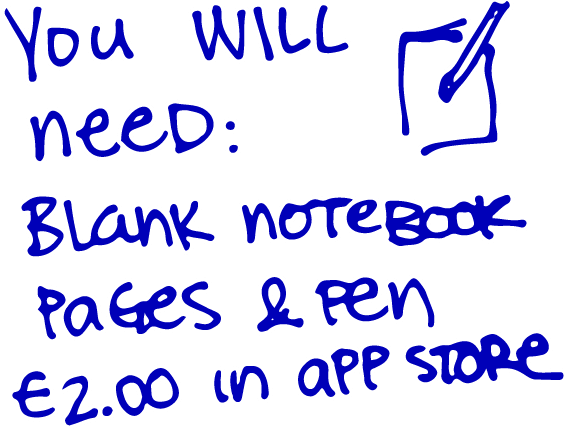 You WILL
neeD:
BLank noteBOOK
PaGes & Pen
€2.00 in aPP STORe